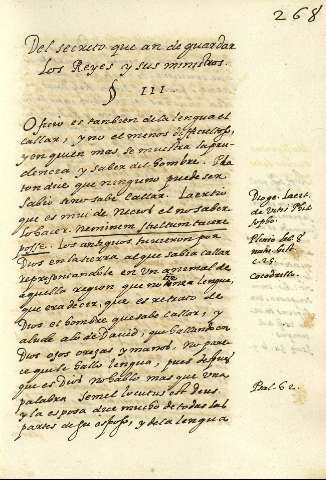 268
Del secreto que an de guardar
los Reyes y sus ministros.
§ III.
Oficio es tambien de la lengua el
callar, y no el menos dificultoso,
y en quien mas se muestra la pru-
dencia y saber del hombre. Pla-
ton dice que ninguno puede ser
sabio sino sabe callar. Laersio
que es mui de necios el no saber
lo hacer. neminem stultum tacere
posse. los antiguos tuvieron por
Dios en la tierra al que sabia callar
representandole en un animal de
aquella region que no tenia lengua,
que era decir, que es retrato de
Dios el hombre que sabe callar, y
alude a lo de David, que hallando en
Dios ojos orejas y manos, no pare-
ce que le hallo lengua, pues de
que es Dios no hablo mas que una
palabra semel locutus est deus.
y la esposa dice mucho de todas las
partes de su esposo, y de la lengua
Dioge. Laers.
de vitis Phil
sopho.
Plinio lib. 8
natu. hist.
c. 25.
Cocodrillo.
Psal. 62.